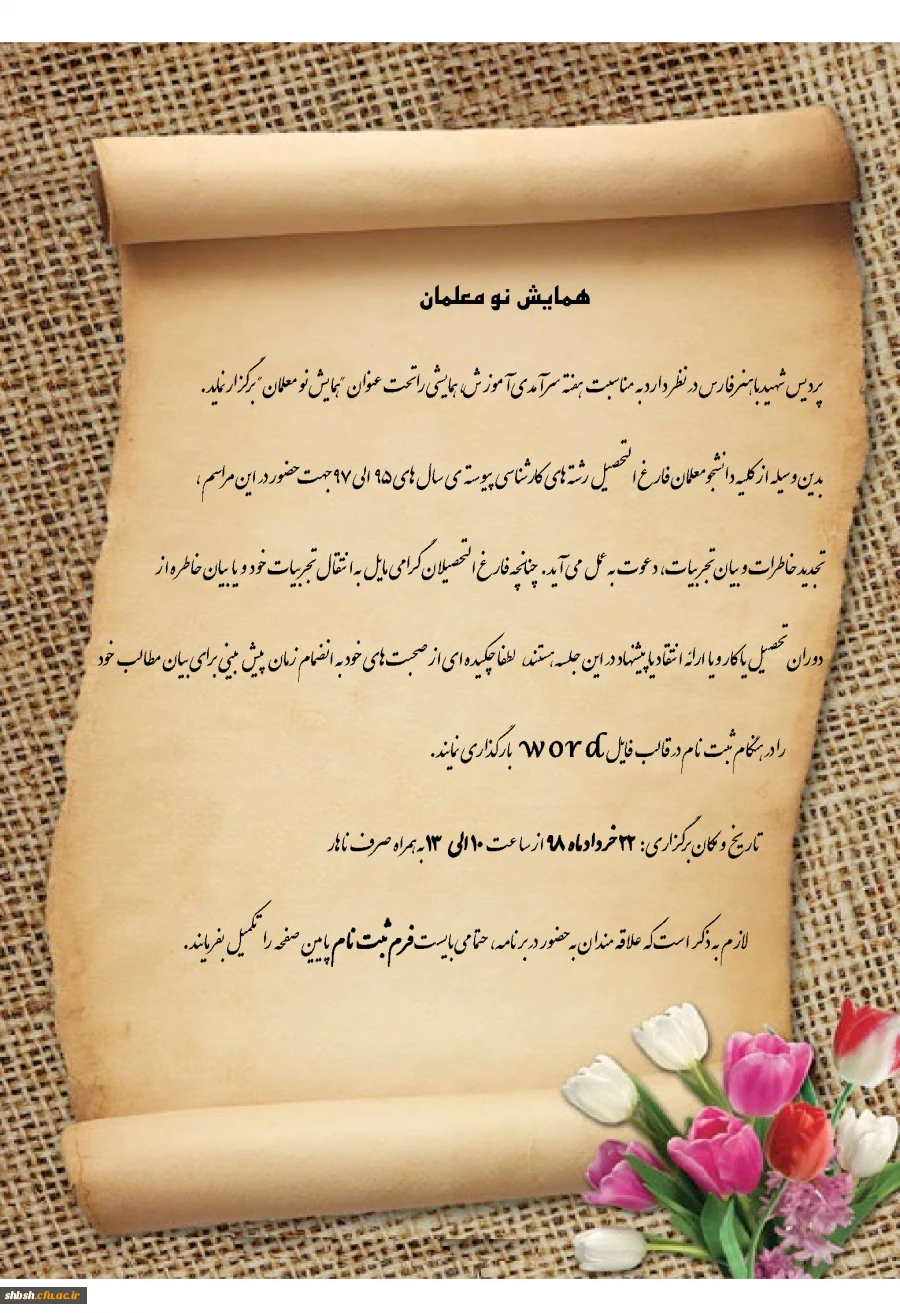 همایش نو معلمان
پردیس شهید باهنر فارس در نظر دارد به مناسبت هفته سرآمدی آموزش، همایشی را تحت عنوان "همایش نو معلمان" برگزار نماید.
بدین وسیله از کلیه دانشجو معلمان فارغ التحصیل رشته های کارشناسی پیوسته ی سال های ۹۵ الی ۹۷ جهت حضور در این مراسم ،
تجدید خاطرات و بیان تجربیات، دعوت به عمل می آید. چنانچه فارغ التحصیلان گرامی مایل به انتقال تجربیات خود و یا بیان خاطره از
دوران تحصیل یا کار و یا ارائه انتقاد یا پیشنهاد در این جلسه هستند، لطفا چکیده ای از صحبت های خود به انضمام زمان پیش بینی برای بیان مطالب خود
را در هنگام ثبت نام در قالب فایل word بارگذاری نمایند.
تاریخ و مکان برگزاری: ۲۲ خرداد ماه ۹۸ از ساعت ۱۰ الی ۱۳ به همراه صرف ناهار
لازم به ذکر است که علاقه مندان به حضور در برنامه، حتما می بایست فرم ثبت نام پایین صفحه را تکمیل بفرمایند.
shbsh.cfu.ac.ir